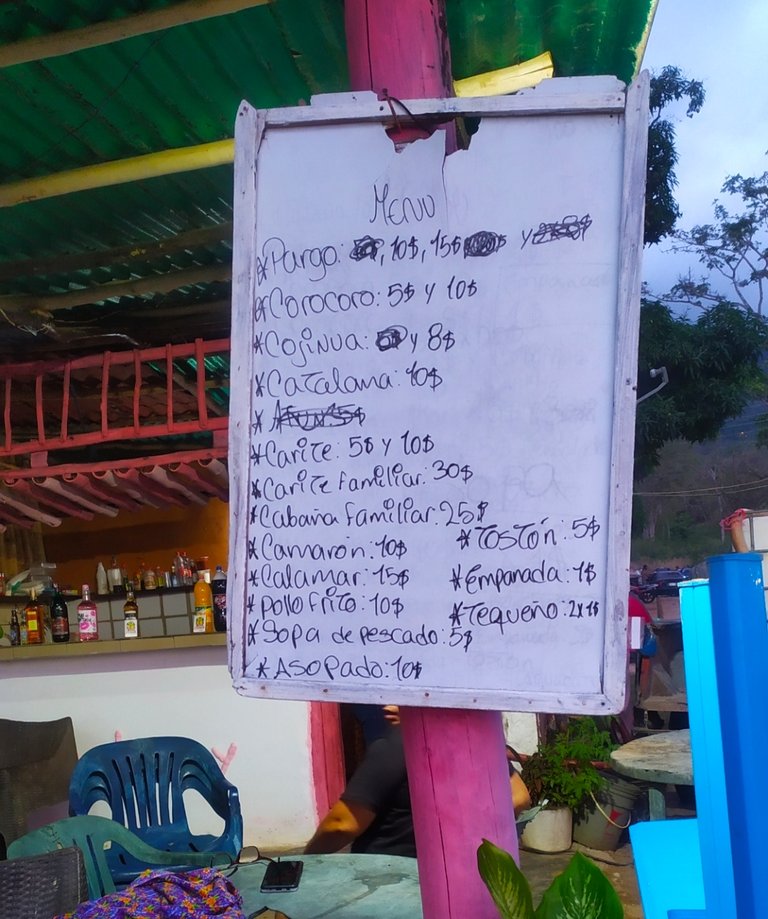 MENU
*Pargo: , 10$, 15$ y
*Corocoro: 5$ y 10$
*Cojinua: y 8$
*Catalana: 10$
*
*Carite: 5$ y 10$
*Carite familiar: 30$
*Cabaña familiar: 25$
*Camarón: 10$
*Calamar: 15$
*pollo frito: 10$
*Sopa de pescado: 5$
*Asopado: 10$
*Tostón: 5$
*Empanada: 1$
*Tequeño: 2x1$